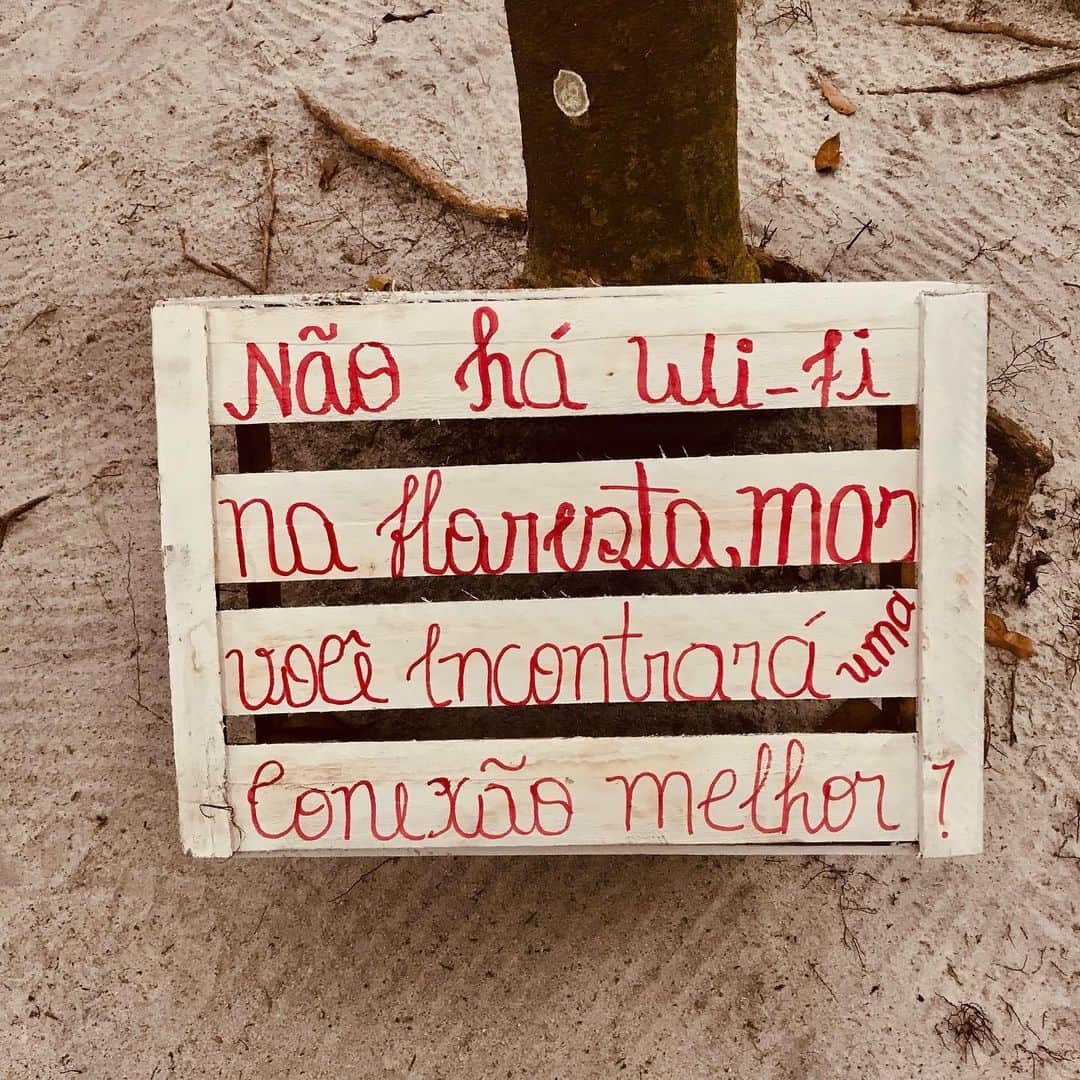 Não há Wi-fi
na floresta, mas
você Incontrará uma
Conexão melhor!